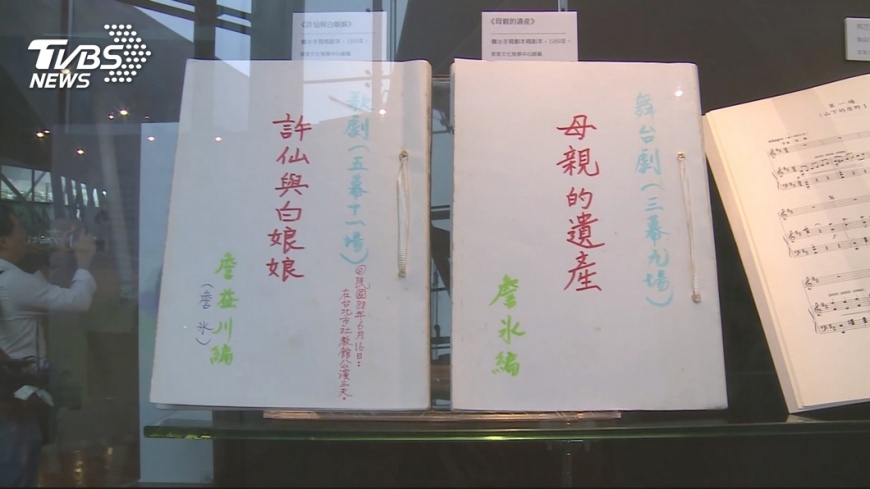 TVBS
NEWS
《許仙與白娘娘》
《母親的遺產》
歌劇(五幕十一場)
許仙與白娘娘
詹益川編
(詹冰)
在台北市社教館公演三天。
舞台劇(三幕九場)
母親的遺產
詹冰編
第一場